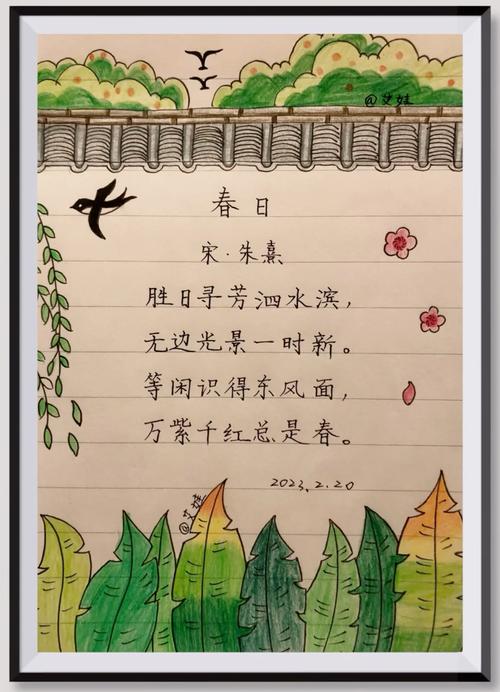 @艾娃
春日
宋·朱熹
胜日寻芳泗水滨，
无边光景一时新。
等闲识得东风面，
万紫千红总是春。
2023.2.20
@艾娃